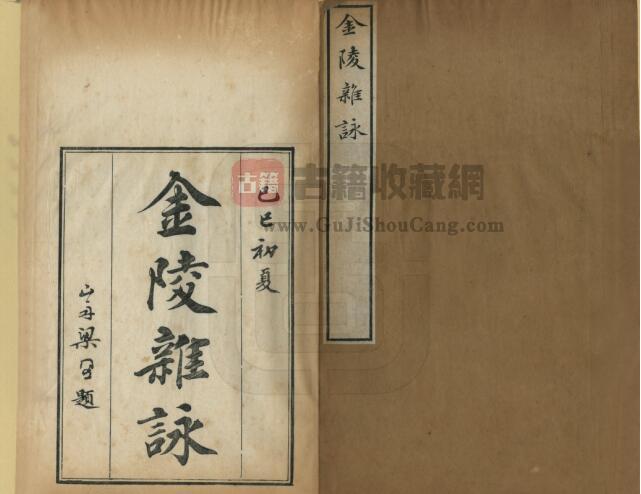 金陵雜詠
己巳初夏
金陵雜詠
古籍
古籍收藏網
www.GuJiShouCang.com